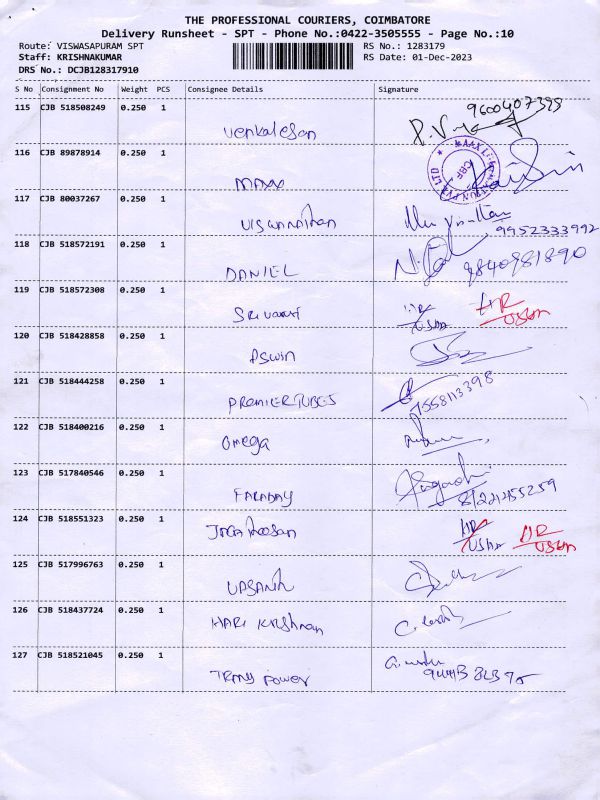 THE PROFESSIONAL COURIERS, COIMBATORE
Delivery Runsheet - SPT - Phone No.:0422-3505555 - Page No.:10
Route: VISWASAPURAM SPT RS No.: 1283179
Staff: KRISHNAKUMAR RS Date: 01-Dec-2023
DRS No.: DCJB128317910
S No Consignment No Weight PCS Consignee Details Signature
115 CJB 518508249 0.250 1 Venkatesan
116 CJB 89878914 0.250 1
117 CJB 80037267 0.250 1 VISWANATHAN 9952333992
118 CJB 518572191 0.250 1 DANIEL 9840981890
119 CJB 518572308 0.250 1 HR HR
USHA USHA
120 CJB 518428858 0.250 1 ASWIN
121 CJB 518444258 0.250 1 PREMIER TUBES 7558113398
122 CJB 518400216 0.250 1 Omega
123 CJB 517840546 0.250 1 FARADAY
124 CJB 518551323 0.250 1 HR HR
USHA USHA
125 CJB 517996763 0.250 1 VASANTH
126 CJB 518437724 0.250 1 HARI Krishnan
127 CJB 518521045 0.250 1 Power